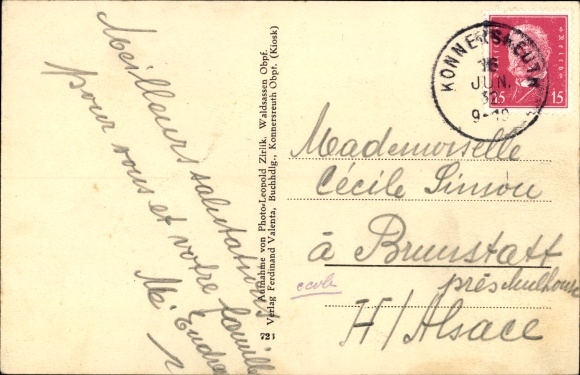 Meilleurs salutations
pour vous et votre famille
Aufnahme von Photo-Leopold Zirlik, Waldsassen Obpf.
Verlag Ferdinand Valenta, Buchhdlg., Konnersreuth Obpf. (Kiosk)
721
KONNERSREUTH
16
JUN.
9-10
15
15
Mademoiselle
Cécile Simon
à Brunstatt
près Mulhouse
école
H/Alsace